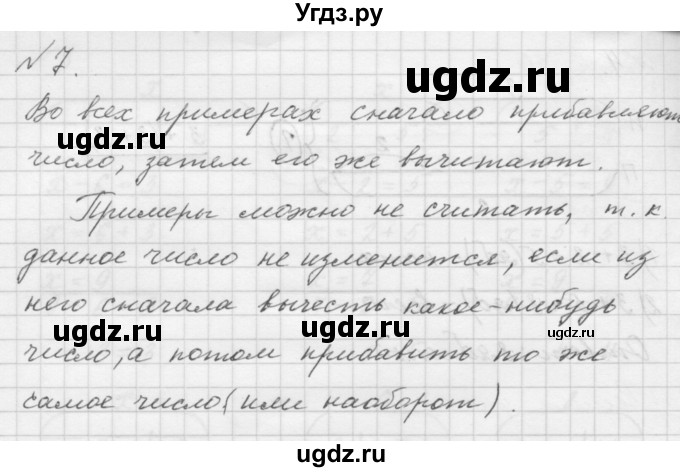 Угдз.ру
№7.
ugdz.ru
Во всех примерах сначало прибавляют
ugdz.ru
число, затем его же вычитают.
Примеры можно не считать, т.к.
данное число не изменится, если из
него сначала вычесть какое-нибудь
ugdz.ru
ugdz.ru
ugdz.ru
число, а потом прибавить то же
самое число (или наоборот).
ugdz.ru